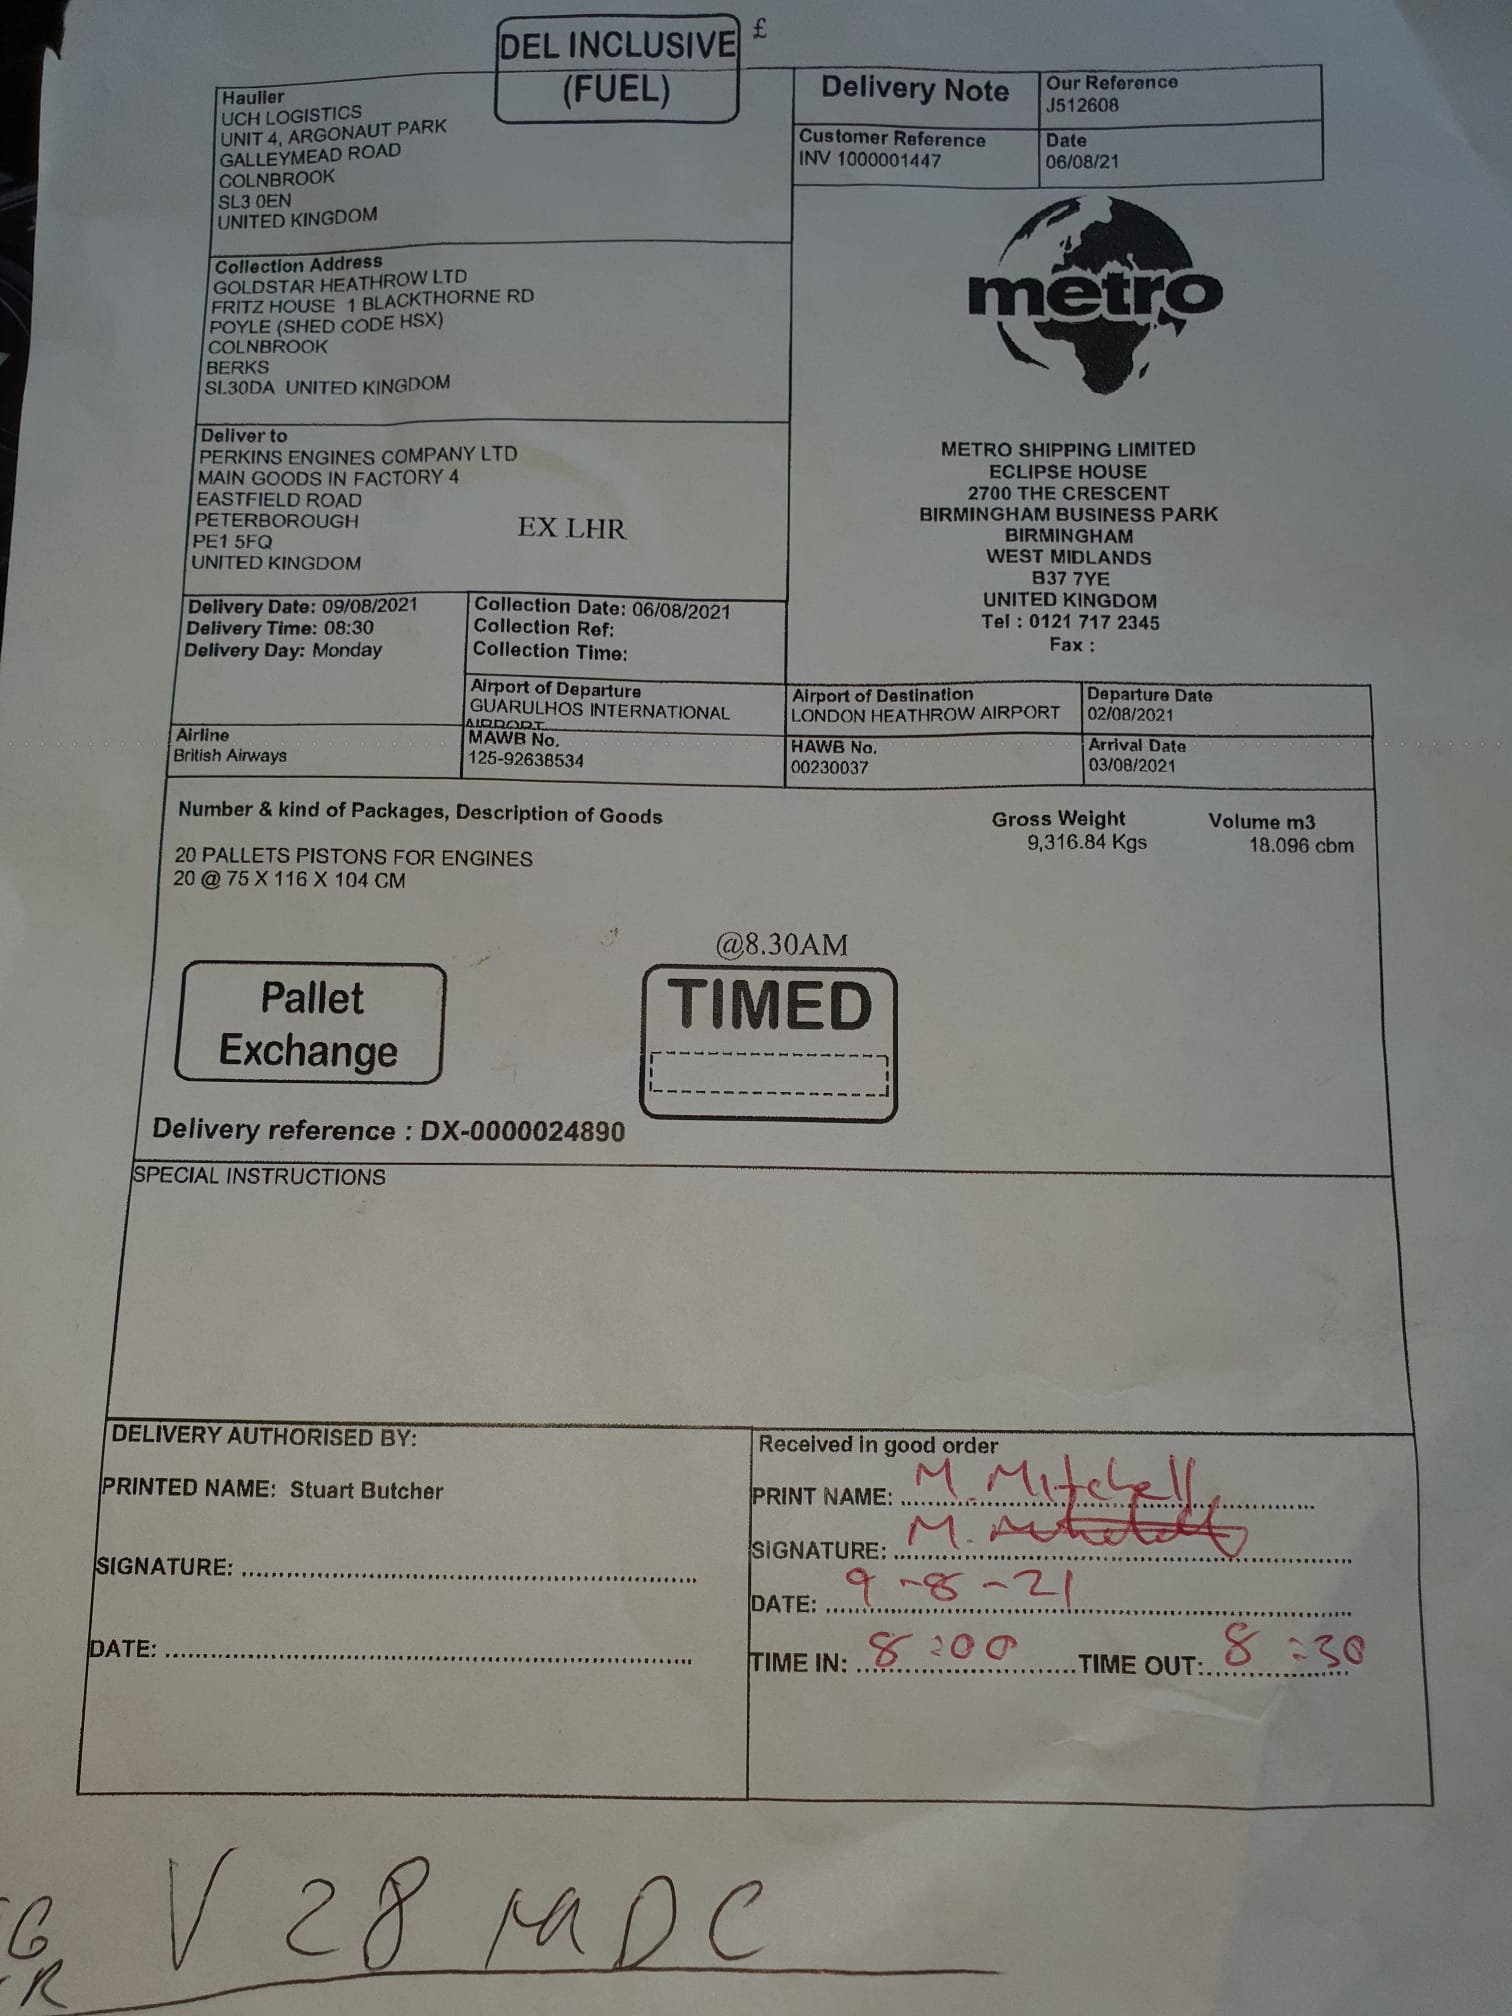 DEL INCLUSIVE £
(FUEL)
Haulier
UCH LOGISTICS
UNIT 4, ARGONAUT PARK
GALLEYMEAD ROAD
COLNBROOK
SL3 0EN
UNITED KINGDOM
Delivery Note
Our Reference
J512608
Customer Reference
INV 1000001447
Date
06/08/21
Collection Address
GOLDSTAR HEATHROW LTD
FRITZ HOUSE 1 BLACKTHORNE RD
POYLE (SHED CODE HSX)
COLNBROOK
BERKS
SL30DA UNITED KINGDOM
metro
Deliver to
PERKINS ENGINES COMPANY LTD
MAIN GOODS IN FACTORY 4
EASTFIELD ROAD
PETERBOROUGH
PE1 5FQ
UNITED KINGDOM
EX LHR
METRO SHIPPING LIMITED
ECLIPSE HOUSE
2700 THE CRESCENT
BIRMINGHAM BUSINESS PARK
BIRMINGHAM
WEST MIDLANDS
B37 7YE
UNITED KINGDOM
Tel : 0121 717 2345
Fax :
Delivery Date: 09/08/2021
Delivery Time: 08:30
Delivery Day: Monday
Collection Date: 06/08/2021
Collection Ref:
Collection Time:
Airport of Departure
GUARULHOS INTERNATIONAL
AIRPORT
Airport of Destination
LONDON HEATHROW AIRPORT
Departure Date
02/08/2021
Airline
British Airways
MAWB No.
125-92638534
HAWB No.
00230037
Arrival Date
03/08/2021
Number & kind of Packages, Description of Goods
Gross Weight
Volume m3
9,316.84 Kgs
18.096 cbm
20 PALLETS PISTONS FOR ENGINES
20 @ 75 X 116 X 104 CM
@8.30AM
Pallet
Exchange
TIMED
Delivery reference : DX-0000024890
SPECIAL INSTRUCTIONS
DELIVERY AUTHORISED BY:
PRINTED NAME: Stuart Butcher
SIGNATURE:
DATE:
Received in good order
PRINT NAME: M. Mitchell
SIGNATURE: M. Mitchell
DATE: 9-8-21
TIME IN: 8:00 TIME OUT: 8:30